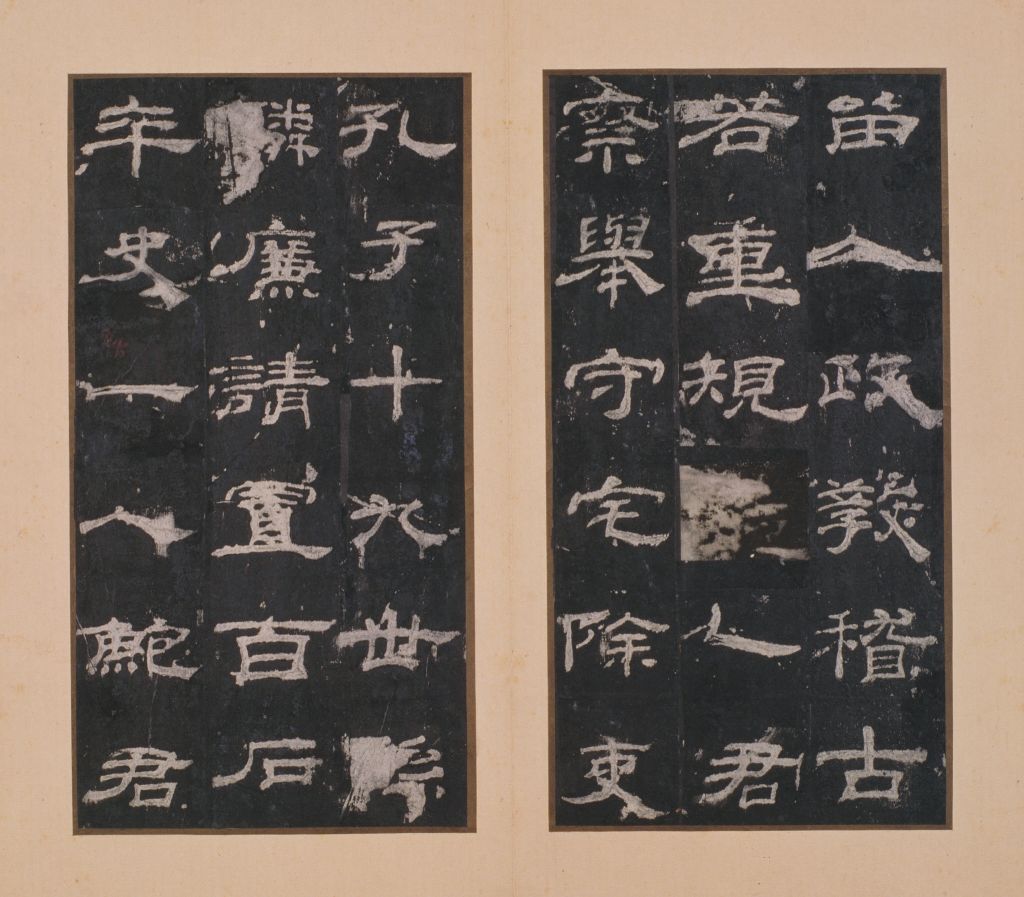 留人政教稽古
若重規乙君
察舉守宅除吏
孔子十九世孫
麟廉請置百石
卒史一人鮑君